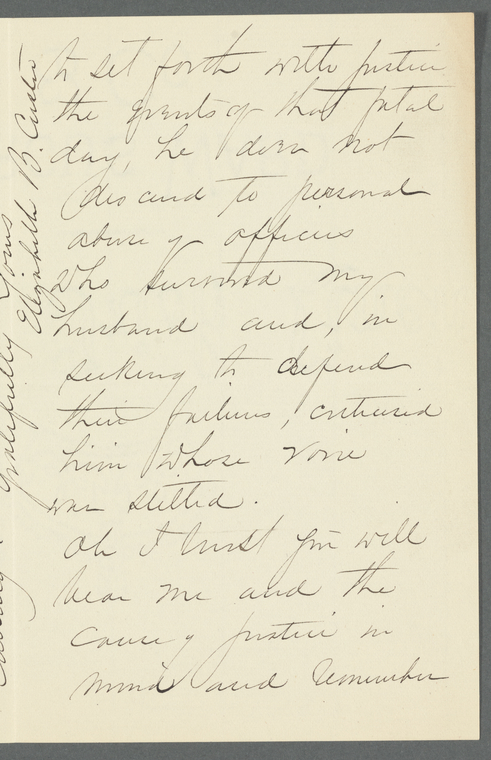 to set forth with justice
the events of that fatal
day, he does not
descend to personal
abuse of officers
who survived my
husband and, in
seeking to defend
their failures, criticised
him whose voice
was stilled.
Oh I trust you will
bear me and the
cause of justice in
mind and remember
gratefully Yours
Elizabeth B. Custer